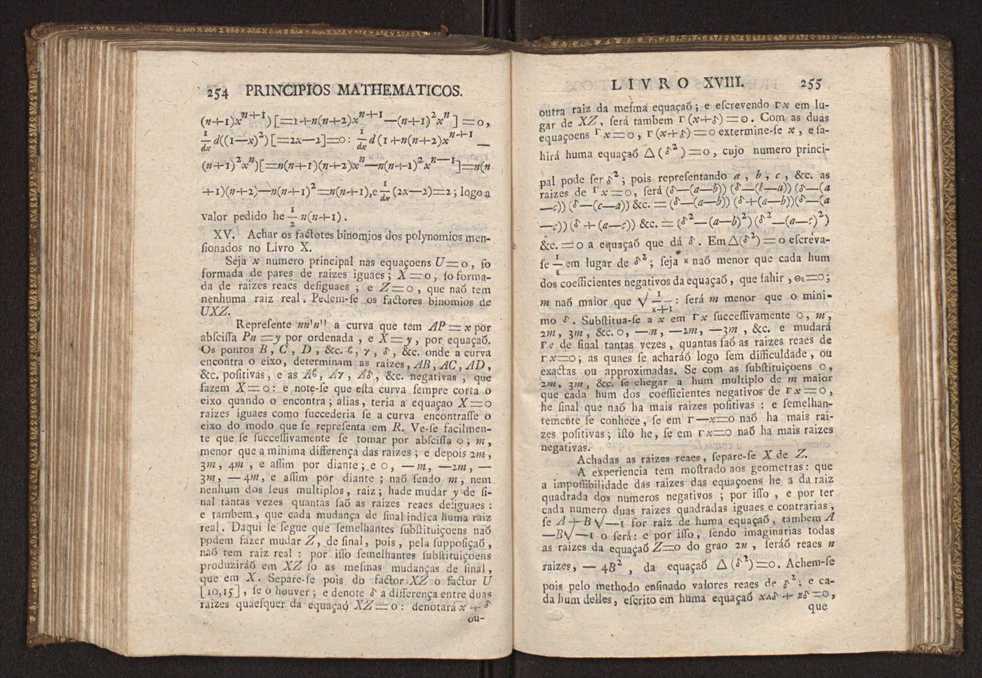 254 PRINCIPIOS MATHEMATICOS.
(n+1)x^{n+1})[=1+n(n+2)x^{n+1}—(n+1)^2x^n] = 0,
\frac{1}{dx}d((1—x)^2)[=2x—2]=0: \frac{1}{dx}d(1+n(n+2)x^{n+1} —
(n+1)^2x^n)[=n(n+1)(n+2)x^n—n(n+1)^2x^{n—1}]=n(n
+1)(n+2)—n(n+1)^2=n(n+1), e \frac{1}{dx}(2x—2)=2; logo a
valor pedido he \frac{1}{2} n(n+1).
XV. Achar os factores binomios dos polynomios men-
ſionados no Livro X.
Seja x numero principal nas equaçoens U=0, ſo
formada de pares de raizes iguaes; X=0, ſo forma-
da de raizes reaes deſiguaes; e Z=0, que naõ tem
nenhuma raiz real. Pedem-ſe os factores binomios de
UXZ.
Repreſente nn'n'' a curva que tem AP=x por
abſciſſa Pn=y por ordenada, e X=y, por equaçaõ.
Os pontos B, C, D, &c. ϐ, γ, δ, &c. onde a curva
encontra o eixo, determinam as raizes, AB, AC, AD,
&c. poſitivas, e as Aϐ, Aγ, Aδ, &c. negativas, que
fazem X=0: e note-ſe que eſta curva ſempre corta o
eixo quando o encontra; alias, teria a equaçao X=0
raizes iguaes como ſuccederia ſe a curva encontraſſe o
eixo do modo que ſe repreſenta em R. Ve-ſe facilmen-
te que ſe ſucceſſivamente ſe tomar por abſciſſa 0; m,
menor que a minima differença das raizes; e depois 2m,
3m, 4m, e aſſim por diante; e 0, —m, —2m, —
3m, —4m, e aſſim por diante; naõ ſendo m, nem
nenhum dos ſeus multiplos, raiz; hade mudar y de ſi-
nal tantas vezes quantas ſaõ as raizes reaes deſiguaes:
e tambem, que cada mudança de ſinal indica huma raiz
real. Daqui ſe ſegue que ſemelhantes ſubſtituiçoens naõ
podem fazer mudar Z, de ſinal, pois, pela ſuppoſiçaõ,
naõ tem raiz real: por iſſo ſemelhantes ſubſtituiçoens
produziráõ em XZ ſo as meſmas mudanças de ſinal,
que em X. Separe-ſe pois do factor XZ o factor U
[10,15], ſe o houver; e denote δ a differença entre duas
raizes quaeſquer da equaçaõ XZ=0: denotará x + δ
ou-
LIVRO XVIII. 255
outra raiz da meſma equaçaõ; e eſcrevendo Γx em lu-
gar de XZ, ſerá tambem Γ(x+δ)=0. Com as duas
equaçoens Γx=0, Γ(x+δ)=0 extermine-ſe x, e ſa-
hirá huma equaçaõ Δ(δ^2)=0, cujo numero princi-
pal pode ſer δ^2; pois repreſentando a, b, c, &c. as
raizes de Γx=0, ſerá (δ—(a—b))(δ—(b—a))(δ—(a
—c))(δ—(c—a)) &c. = (δ—(a—b))(δ+(a—b))(δ—(a
—c))(δ+(a—c)) &c.=(δ^2—(a—b)^2)(δ^2—(a—c)^2)
&c. = 0 a equaçaõ que dá δ. Em Δ(δ^2)=0 eſcreva-
ſe \frac{1}{ε} em lugar de δ^2; ſeja κ naõ menor que cada hum
dos coeſſicientes negativos da equaçaõ, que ſahir, Θε=0;
m naõ maior que √\frac{1}{κ+1}: ſerá m menor que o mini-
mo δ. Subſtitua-ſe a x em Γx ſucceſſivamente 0, m,
2m, 3m, &c. 0, —m, —2m, —3m, &c. e mudará
Γx de ſinal tantas vezes, quantas ſaõ as raizes reaes de
Γx=0; as quaes ſe acharáõ logo ſem difficuldade, ou
exactas ou approximadas. Se com as ſubſtituiçoens 0,
2m, 3m, &c. ſe chegar a hum multiplo de m maior
que cada hum dos coefficientes negativos de Γx=0,
he ſinal que naõ ha mais raizes poſitivas: e ſemelhan-
temente ſe conhece, ſe em Γ—x=0 naõ ha mais rai-
zes poſitivas; iſto he, ſe em Γx=0 naõ ha mais raizes
negativas.
Achadas as raizes reaes, ſepare-ſe X de Z.
A experiencia tem moſtrado aos geometras: que
a impoſſibilidade das raizes das equaçoens he a da raiz
quadrada dos numeros negativos; por iſſo, e por ter
cada numero duas raizes quadradas iguaes e contrarias,
ſe A+B√—1 for raiz de huma equaçaõ, tambem A
—B√—1 o ſerá: e por iſſo, ſendo imaginarias todas
as raizes da equaçaõ Z=0 do grao 2n, ſeráõ reaes n
raizes, —4B^2, da equaçaõ Δ(δ^2)=0. Achem-ſe
pois pelo methodo enſinado valores reaes de δ^2; e ca-
da hum delles, eſcrito em huma equaçaõ xΛδ + Σδ=0,
que